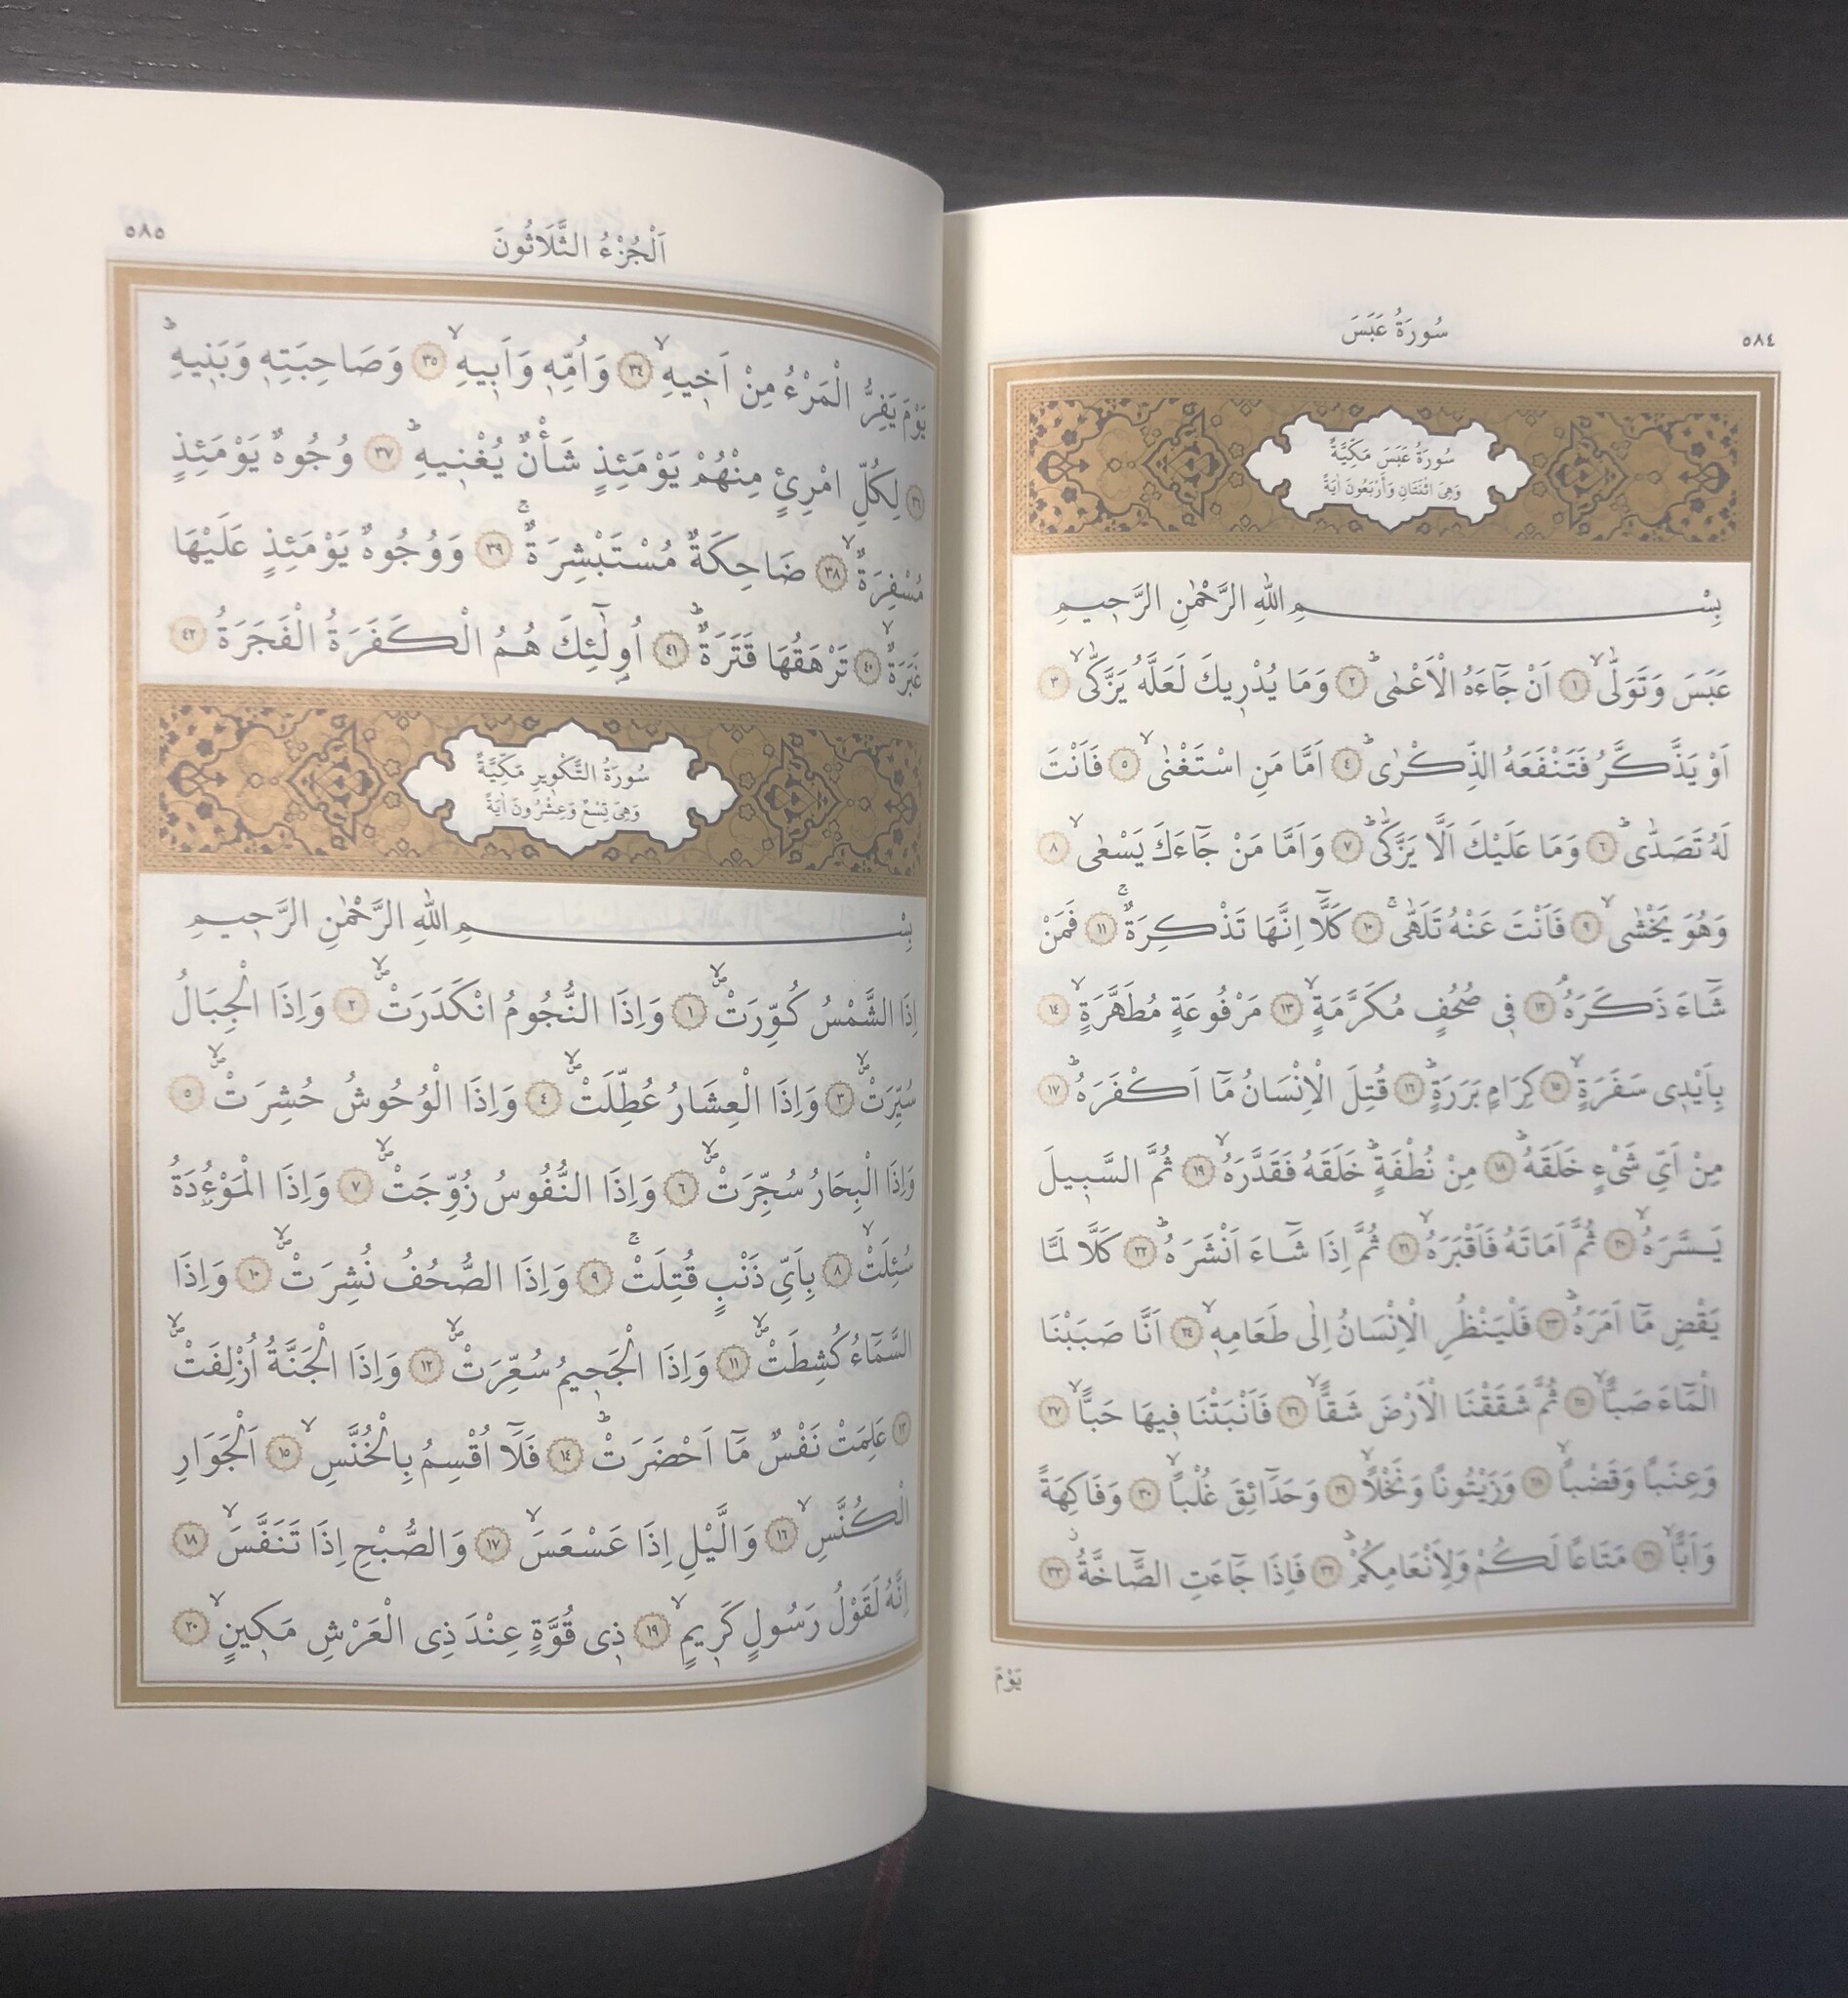 سُورَةُ عَبَسَ
٥٨٤
سُورَةُ عَبَسَ مَكِّيَّةٌ
وَهِىَ اثْنَتَانِ وَاَرْبَعُونَ اٰيَةً
بِسْمِ اللّٰهِ الرَّحْمٰنِ الرَّحٖيمِ
عَبَسَ وَتَوَلّٰىۙ ﴿١﴾ اَنْ جَٓاءَهُ الْاَعْمٰىۜ ﴿٢﴾ وَمَا يُدْرٖيكَ لَعَلَّهُ يَزَّكّٰىۙ ﴿٣﴾
اَوْ يَذَّكَّرُ فَتَنْفَعَهُ الذِّكْرٰىۜ ﴿٤﴾ اَمَّا مَنِ اسْتَغْنٰىۙ ﴿٥﴾ فَاَنْتَ
لَهُ تَصَدّٰىۜ ﴿٦﴾ وَمَا عَلَيْكَ اَلَّا يَزَّكّٰىۜ ﴿٧﴾ وَاَمَّا مَنْ جَٓاءَكَ يَسْعٰىۙ ﴿٨﴾
وَهُوَ يَخْشٰىۙ ﴿٩﴾ فَاَنْتَ عَنْهُ تَلَهّٰىۚ ﴿١٠﴾ كَلَّٓا اِنَّهَا تَذْكِرَةٌۚ ﴿١١﴾ فَمَنْ
شَٓاءَ ذَكَرَهُۢ ﴿١٢﴾ فٖى صُحُفٍ مُكَرَّمَةٍۙ ﴿١٣﴾ مَرْفُوعَةٍ مُطَهَّرَةٍۙ ﴿١٤﴾
بِاَيْدٖى سَفَرَةٍۙ ﴿١٥﴾ كِرَامٍ بَرَرَةٍۜ ﴿١٦﴾ قُتِلَ الْاِنْسَانُ مَٓا اَكْفَرَهُۜ ﴿١٧﴾
مِنْ اَىِّ شَىْءٍ خَلَقَهُۜ ﴿١٨﴾ مِنْ نُطْفَةٍۜ خَلَقَهُ فَقَدَّرَهُۙ ﴿١٩﴾ ثُمَّ السَّبٖيلَ
يَسَّرَهُۙ ﴿٢٠﴾ ثُمَّ اَمَاتَهُ فَاَقْبَرَهُۙ ﴿٢١﴾ ثُمَّ اِذَا شَٓاءَ اَنْشَرَهُۜ ﴿٢٢﴾ كَلَّا لَمَّا
يَقْضِ مَٓا اَمَرَهُۜ ﴿٢٣﴾ فَلْيَنْظُرِ الْاِنْسَانُ اِلٰى طَعَامِهٖۙ ﴿٢٤﴾ اَنَّا صَبَبْنَا
الْمَٓاءَ صَبًّاۙ ﴿٢٥﴾ ثُمَّ شَقَقْنَا الْاَرْضَ شَقًّاۙ ﴿٢٦﴾ فَاَنْبَتْنَا فٖيهَا حَبًّاۙ ﴿٢٧﴾
وَعِنَبًا وَقَضْبًاۙ ﴿٢٨﴾ وَزَيْتُونًا وَنَخْلًاۙ ﴿٢٩﴾ وَحَدَٓائِقَ غُلْبًاۙ ﴿٣٠﴾ وَفَاكِهَةً
وَاَبًّاۙ ﴿٣١﴾ مَتَاعًا لَكُمْ وَلِاَنْعَامِكُمْۜ ﴿٣٢﴾ فَاِذَا جَٓاءَتِ الصَّٓاخَّةُۘ ﴿٣٣﴾
يَوْمَ
اَلْجُزْءُ الثَّلَاثُونَ
٥٨٥
يَوْمَ يَفِرُّ الْمَرْءُ مِنْ اَخٖيهِۙ ﴿٣٤﴾ وَاُمِّهٖ وَاَبٖيهِۙ ﴿٣٥﴾ وَصَاحِبَتِهٖ وَبَنٖيهِۜ
﴿٣٦﴾ لِكُلِّ امْرِئٍ مِنْهُمْ يَوْمَئِذٍ شَأْنٌ يُغْنٖيهِۜ ﴿٣٧﴾ وُجُوهٌ يَوْمَئِذٍ
مُسْفِرَةٌۙ ﴿٣٨﴾ ضَاحِكَةٌ مُسْتَبْشِرَةٌۚ ﴿٣٩﴾ وَوُجُوهٌ يَوْمَئِذٍ عَلَيْهَا
غَبَرَةٌۙ ﴿٤٠﴾ تَرْهَقُهَا قَتَرَةٌۜ ﴿٤١﴾ اُو۬لٰٓئِكَ هُمُ الْكَفَرَةُ الْفَجَرَةُ ﴿٤٢﴾
سُورَةُ التَّكْوٖيرِ مَكِّيَّةٌ
وَهِىَ تِسْعٌ وَعِشْرُونَ اٰيَةً
بِسْمِ اللّٰهِ الرَّحْمٰنِ الرَّحٖيمِ
اِذَا الشَّمْسُ كُوِّرَتْۙۖ ﴿١﴾ وَاِذَا النُّجُومُ انْكَدَرَتْۙۖ ﴿٢﴾ وَاِذَا الْجِبَالُ
سُيِّرَتْۙۖ ﴿٣﴾ وَاِذَا الْعِشَارُ عُطِّلَتْۙۖ ﴿٤﴾ وَاِذَا الْوُحُوشُ حُشِرَتْۙۖ ﴿٥﴾
وَاِذَا الْبِحَارُ سُجِّرَتْۙۖ ﴿٦﴾ وَاِذَا النُّفُوسُ زُوِّجَتْۙۖ ﴿٧﴾ وَاِذَا الْمَوْءُ۫دَةُ
سُئِلَتْۙ ﴿٨﴾ بِاَىِّ ذَنْبٍ قُتِلَتْۚ ﴿٩﴾ وَاِذَا الصُّحُفُ نُشِرَتْۙۖ ﴿١٠﴾ وَاِذَا
السَّمَٓاءُ كُشِطَتْۙۖ ﴿١١﴾ وَاِذَا الْجَحٖيمُ سُعِّرَتْۙۖ ﴿١٢﴾ وَاِذَا الْجَنَّةُ اُزْلِفَتْۙۖ
﴿١٣﴾ عَلِمَتْ نَفْسٌ مَٓا اَحْضَرَتْۜ ﴿١٤﴾ فَلَٓا اُقْسِمُ بِالْخُنَّسِۙ ﴿١٥﴾ اَلْجَوَارِ
الْكُنَّسِۙ ﴿١٦﴾ وَالَّيْلِ اِذَا عَسْعَسَۙ ﴿١٧﴾ وَالصُّبْحِ اِذَا تَنَفَّسَۙ ﴿١٨﴾
اِنَّهُ لَقَوْلُ رَسُولٍ كَرٖيمٍۙ ﴿١٩﴾ ذٖى قُوَّةٍ عِنْدَ ذِى الْعَرْشِ مَكٖينٍۙ ﴿٢٠﴾